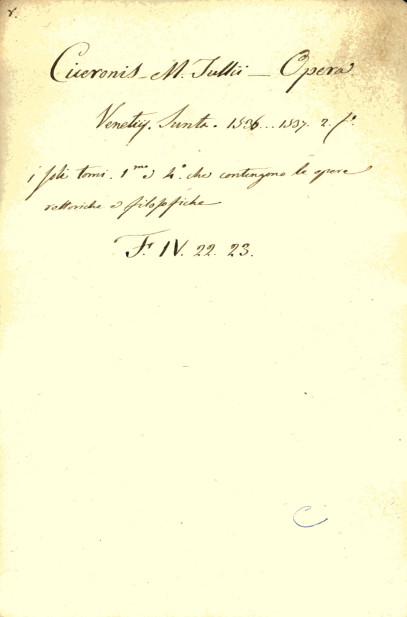 Ciceronis_M. Tullii _ Opera
Venetiis. Junta. 1536...1537. 2. fo.
i soli tomi. 1mo e 4o. che contengono le opere
rettoriche e filosofiche
F. IV. 22. 23.